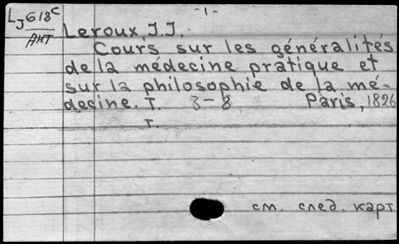 LJ618C
АНТ
-1-
Leroux, J.J.
Cours sur les généralités
de la médecine pratique et
sur la philosophie de la mé-
decine. T. 3-8 Paris, 1826
см. след. карт